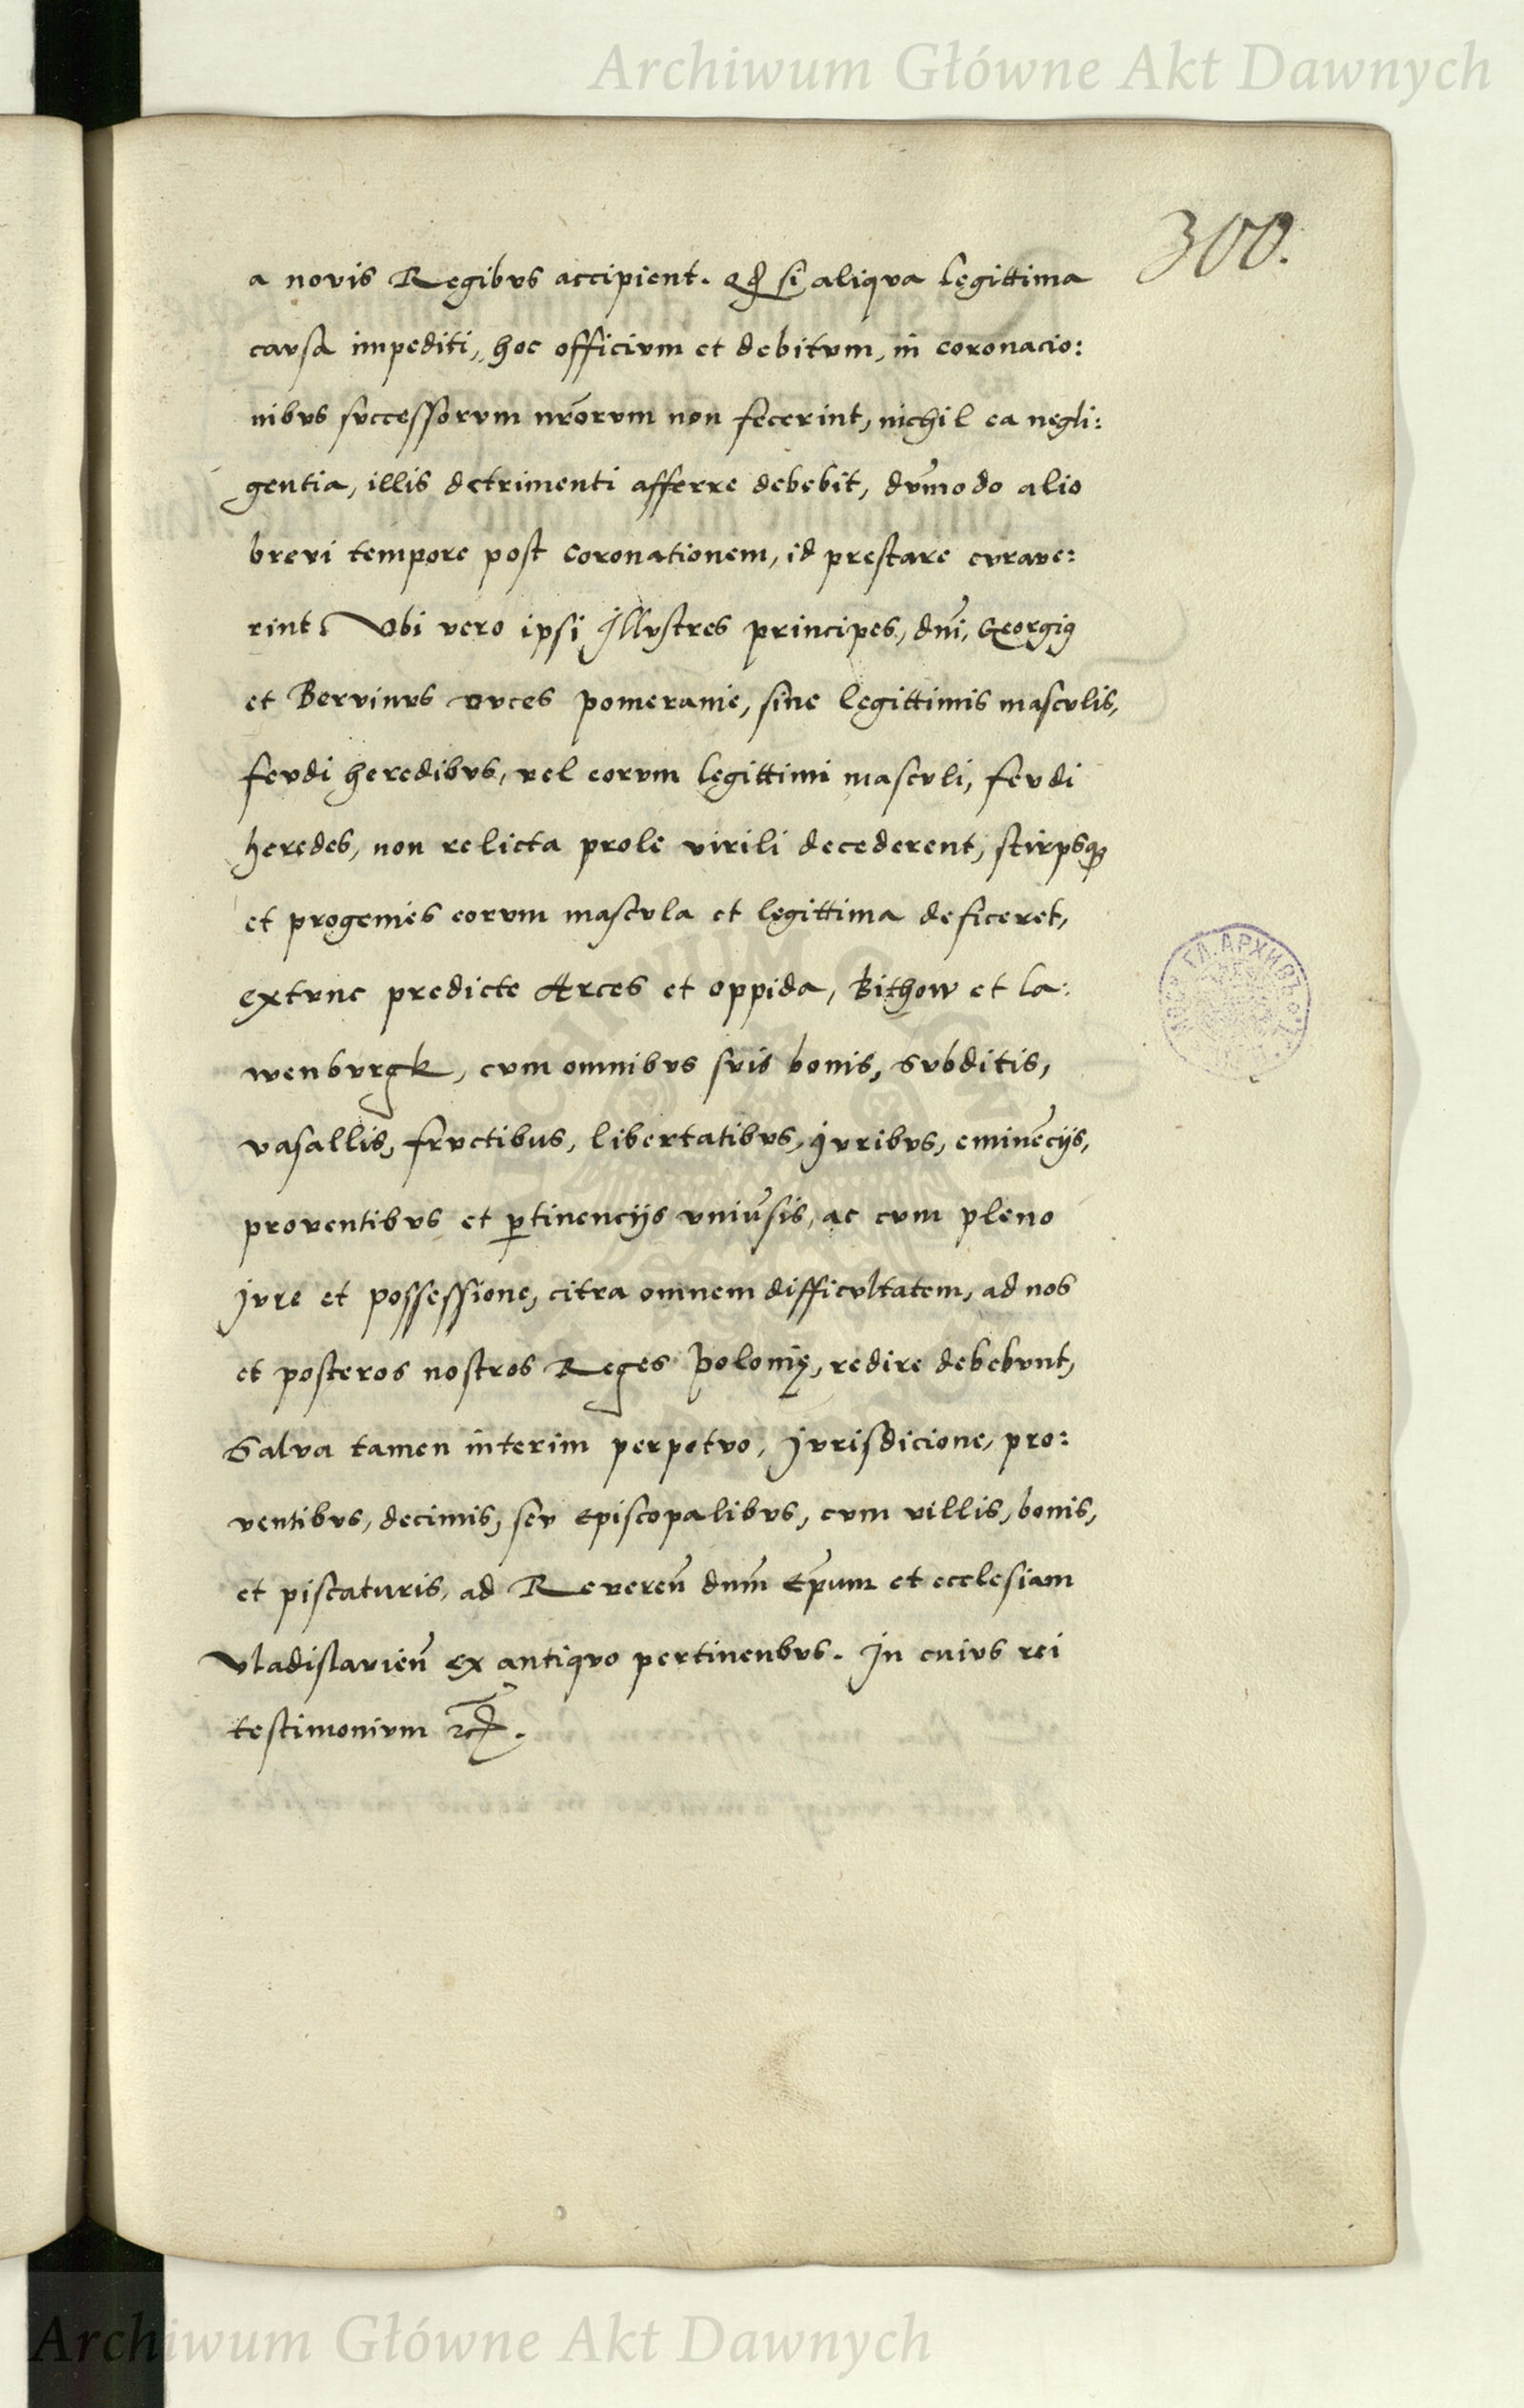 Archiwum Główne Akt Dawnych
300.
a novis Regibvs accipient. Qđ si aliqva legittima
cavsa impediti, hoc officivm et debitvm, in coronacio:
nibvs svccessorvm nr̄orvm non fecerint, nichil ea negli:
gentia, illis detrimenti afferre debebit, dv̄modo alio
brevi tempore post coronationem, id prestare cvrave:
rint. Vbi vero ipsi Illvstres principes, dn̄i, Georgiꝰ
et Barvinvs dvces pomeranie, sine legittimis mascvlis,
fevdi heredibvs, vel eorvm legittimi mascvli, fevdi
heredes, non relicta prole virili decederent, stirpsqꝫ
et progenies eorvm mascvla et legittima deficeret,
extvnc predicte Arces et oppida, Bithow et La:
wenbvrgk, cvm omnibvs svis bonis, svbditis,
vasallis, frvctibus, libertatibvs, jvribvs, eminēcijs,
proventibvs et ꝑtinencijs vniv̄sis, ac cvm pleno
jvre et possessione, citra omnem difficvltatem, ad nos
et posteros nostros Reges Polonię, redire debebvnt,
Salva tamen interim perpetvo, jvrisdicione, pro:
ventibvs, decimis, sev episcopalibvs, cvm villis, bonis,
et piscaturis, ad Reveren̄ dnm̄ Ep̄um et ecclesiam
Vladislavien̄ ex antiqvo pertinenbvs. In cuivs rei
testimonivm
Archiwum Główne Akt Dawnych